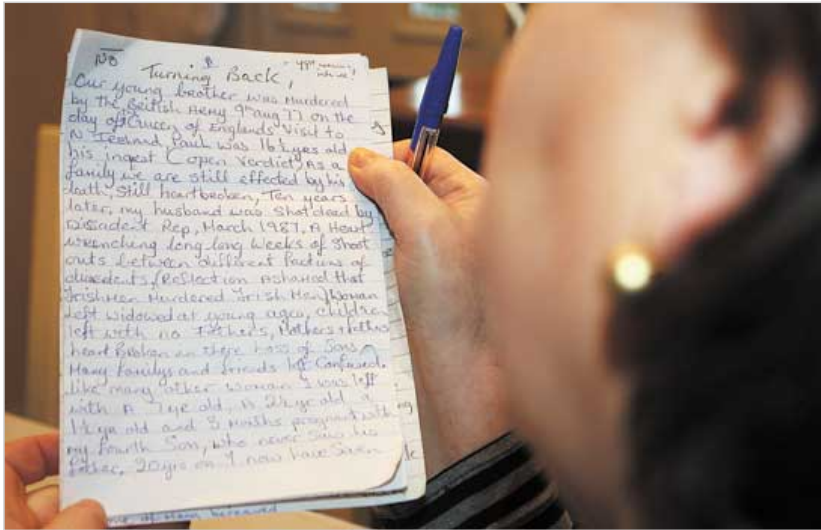 No
Turning Back,
Our young brother was Murdered
by the British Army 9th aug 77 on the
day of Queen of Englands Visit to
N Ireland, Paul was 16½ yes old
his inqest (open Verdict, As a
family we are still effected by his
death, still heartbroken, Ten years
later, my husband was shot dead by
Dissadent Rep, March 1987. A Heart
wrenching long long Weeks of Shoot
outs between different factions of
dissedents, (Reflection Ashamed that
Irish Men Murdered Irish Men) Woman
Left widowed at young ages, children
left with no Fathers, Mothers +
heart Broken on there Loss of Sons
Many familys and friends left Confused.
Like many other woman I was left
with A 7 ye old, A 2½ ye old a
1½ ye old and 8 Months pregnant with
my fourth Son, who never saw his
father. 20 yrs on I now have Seven
bereaved